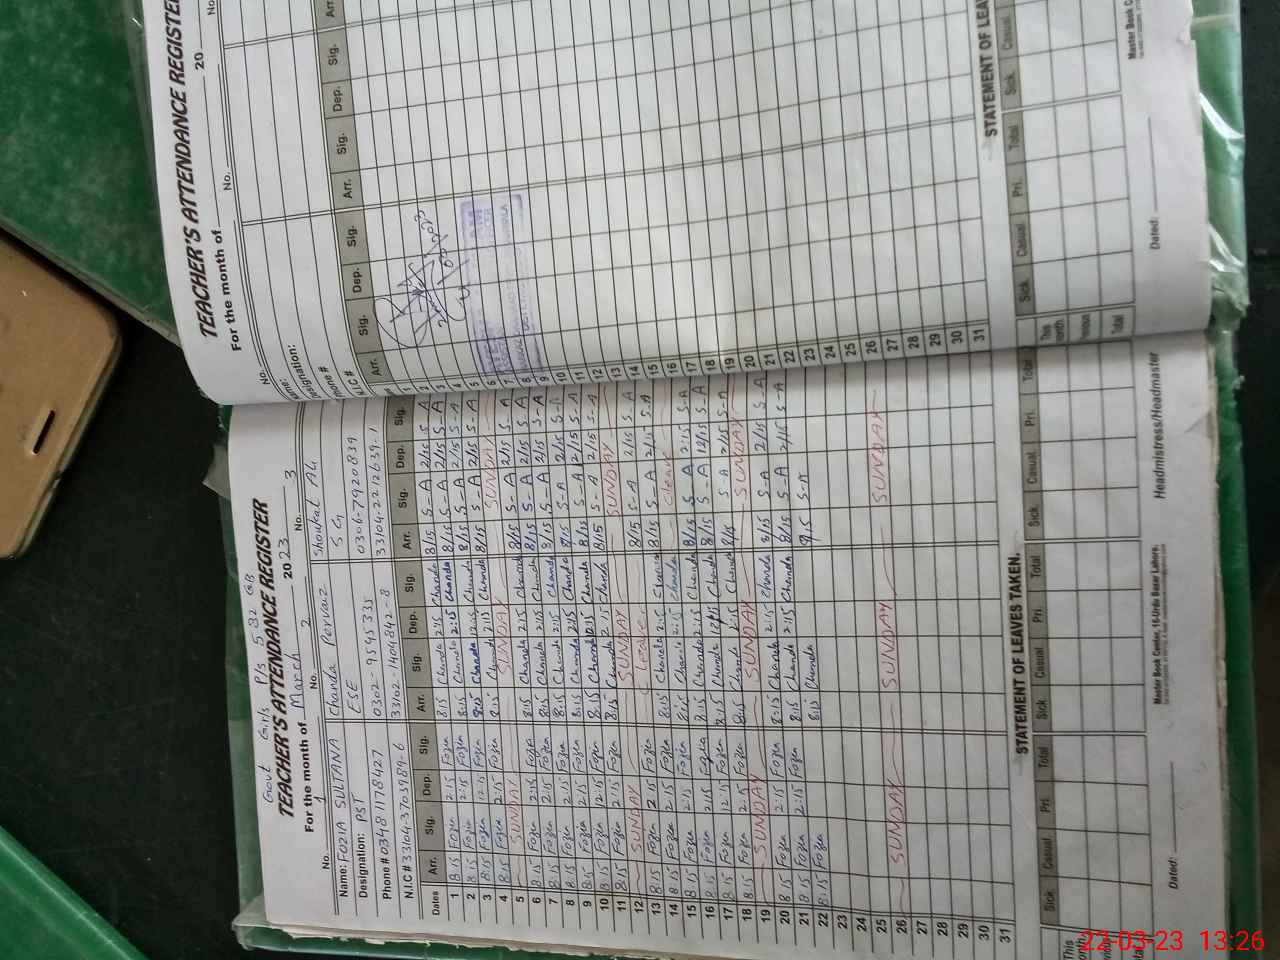 Govt Girls P/S 532 GB
TEACHER'S ATTENDANCE REGISTER
For the month of March 2023
No. 1 No. 2 No. 3
Name: FOZIA SULTANA Chanda Pervaiz Showkat Ali
Designation: PST ESE S G
Phone # 03481178427 0302-9595335 0306-7920839
N.I.C # 33104-3703989-6 33102-1404842-8 33104-2212639-1
Dates Arr. Sig. Dep. Sig. Arr. Sig. Dep. Sig. Arr. Sig. Dep. Sig.
1 8:15 Fozia 2:15 Fozia 8:15 Chanda 2:15 Chanda 8/15 S-A 2/15 S A
2 8:15 Fozia 2:15 Fozia 8:15 Chanda 2:15 Chanda 8/15 S-A 2/15 S-A
3 8:15 Fozia 12:15 Fozia 8:15 Chanda 12:15 Chanda 8/15 S-A 2/15 S-A
4 8:15 Fozia 2:15 Fozia 8:15 Chanda 2:15 Chanda 8/15 S A 2/15 S-A
5 SUNDAY SUNDAY SUNDAY
6 8:15 Fozia 2:15 Fozia 8:15 Chanda 2:15 Chanda 8/15 S-A 2/15 S-A
7 8:15 Fozia 2:15 Fozia 8:15 Chanda 2:15 Chanda 8/15 S-A 2/15 S-A
8 8:15 Fozia 2:15 Fozia 8:15 Chanda 2:15 Chanda 8/15 S-A 2/15 S-A
9 8:15 Fozia 2:15 Fozia 8:15 Chanda 2:15 Chanda 8/15 S-A 2/15 S-A
10 8:15 Fozia 12:15 Fozia 8:15 Chanda 12:15 Chanda 8/15 S-A 2/15 S-A
11 8:15 Fozia 2:15 Fozia 8:15 Chanda 2:15 Chanda 8/15 S-A 2/15 S-A
12 SUNDAY SUNDAY SUNDAY
13 8:15 Fozia 2:15 Fozia Leave 8/15 S-A 2/15 S-A
14 8:15 Fozia 2:15 Fozia 8:15 Chanda 2:15 Chanda 8/15 S-A 2:15 S-A
15 8:15 Fozia 2:15 Fozia 8:15 Chanda 2:15 Chanda Leave
16 8:15 Fozia 2:15 Fozia 8:15 Chanda 2:15 Chanda 8/15 S-A 2:15 S-A
17 8:15 Fozia 12:15 Fozia 8:15 Chanda 12:15 Chanda 8/15 S-A 12/15 S-A
18 8:15 Fozia 2:15 Fozia 8:15 Chanda 2:15 Chanda 8/15 S-A 2/15 S-A
19 SUNDAY SUNDAY SUNDAY
20 8:15 Fozia 2:15 Fozia 8:15 Chanda 2:15 Chanda 8/15 S-A 2/15 S A
21 8:15 Fozia 2:15 Fozia 8:15 Chanda 2:15 Chanda 8/15 S-A 2/15 S-A
22 8:15 Fozia 8:15 Chanda 8/15 S-A
23
24
25
26 SUNDAY SUNDAY SUNDAY
27
28
29
30
31
STATEMENT OF LEAVES TAKEN.
Sick Casual Pri. Total Sick Casual Pri. Total Sick Casual Pri. Total
This month.
Master Book Center, 16-Urdu Bazar Lahore.
Dated: Headmistress/Headmaster
TEACHER'S ATTENDANCE REGISTER
For the month of 20
No. No. No.
Name:
Designation:
Phone #
N.I.C #
Arr. Sig. Dep. Sig. Arr. Sig. Dep. Sig. Arr.
1
2
3
4
5
6
7
8
9
10
11
12
13
14
15
16
17
18
19
20
21
22
23
24
25
26
27
28
29
30
31
STATEMENT OF LEA
Sick Casual Pri. Total Sick Casual
This month.
Previous
Total
Master Book C
Dated:
22-03-23 13:26